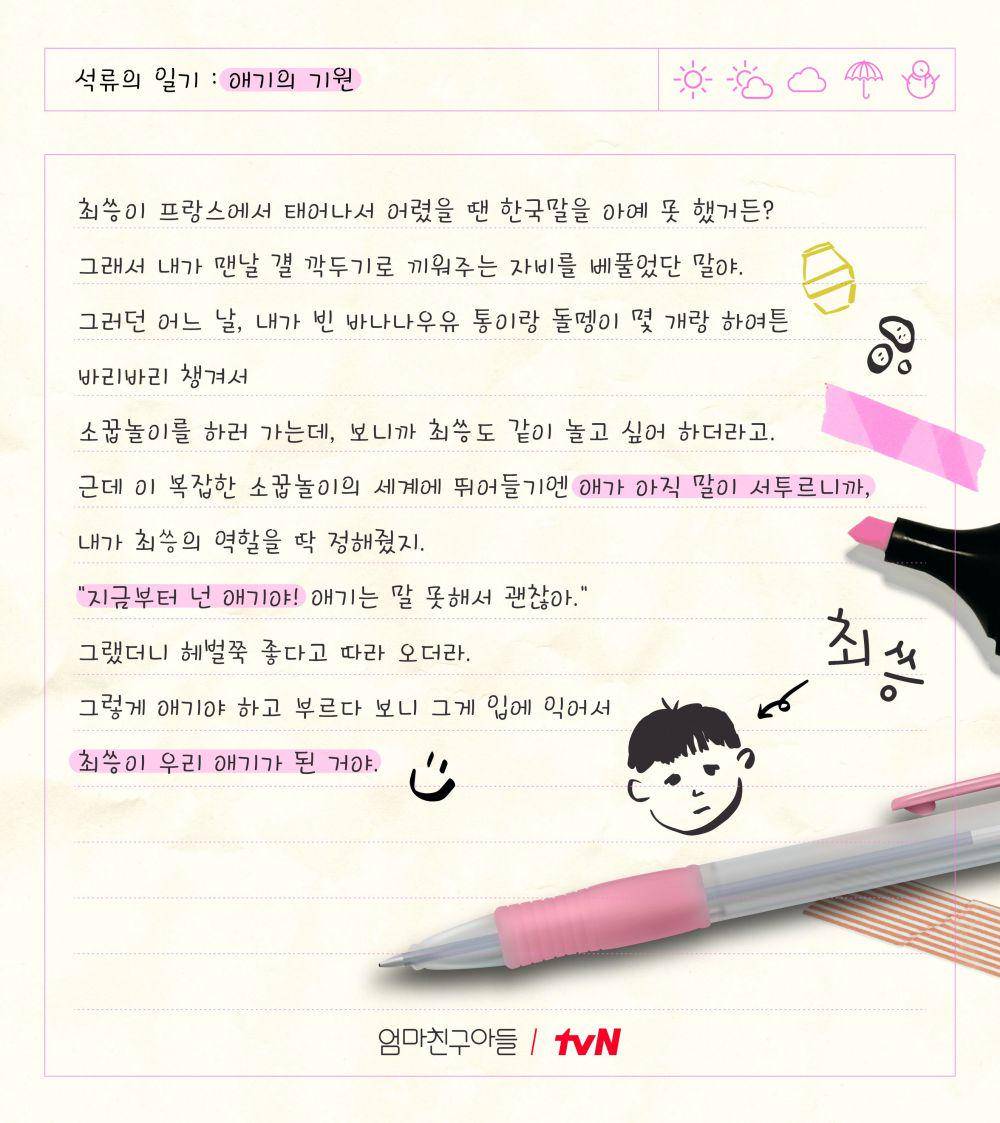 석류의 일기 : 애기의 기원
최씅이 프랑스에서 태어나서 어렸을 땐 한국말을 아예 못 했거든?
그래서 내가 맨날 걜 깍두기로 끼워주는 자비를 베풀었단 말야.
그러던 어느 날, 내가 빈 바나나우유 통이랑 돌멩이 몇 개랑 하여튼
바리바리 챙겨서
소꿉놀이를 하러 가는데, 보니까 최씅도 같이 놀고 싶어 하더라고.
근데 이 복잡한 소꿉놀이의 세계에 뛰어들기엔 얘가 아직 말이 서투르니까,
내가 최씅의 역할을 딱 정해줬지.
"지금부터 넌 애기야! 애기는 말 못해서 괜찮아."
그랬더니 헤벌쭉 좋다고 따라 오더라.
그렇게 애기야 하고 부르다 보니 그게 입에 익어서
최씅이 우리 애기가 된 거야.
최씅
엄마친구아들 / tvN